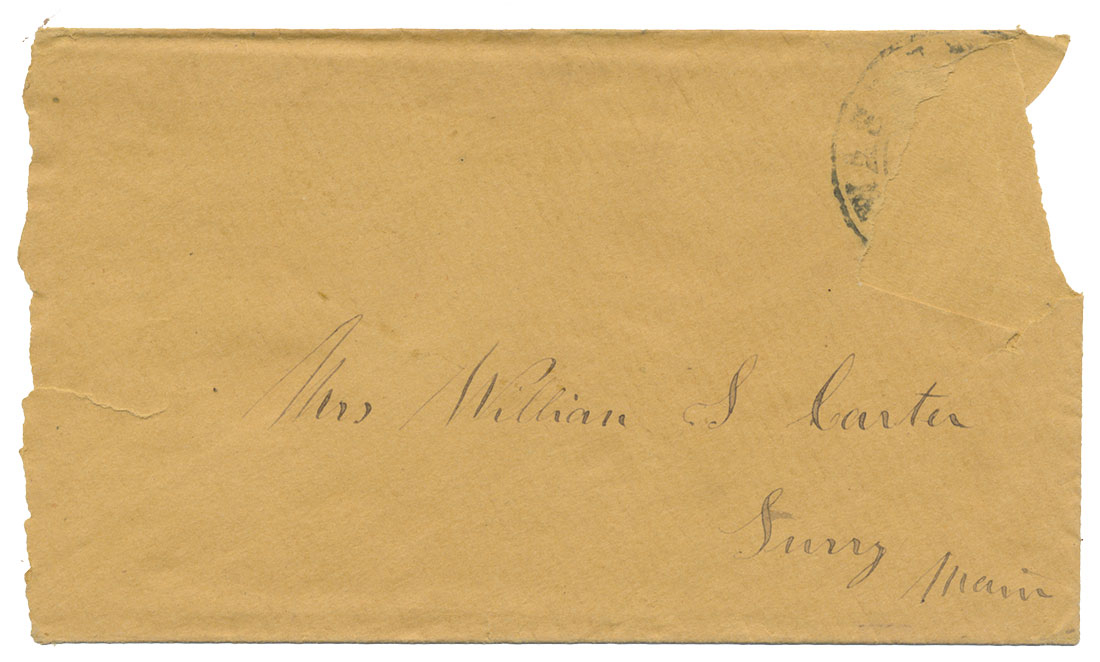 Mrs William S Carter
Surry
Main